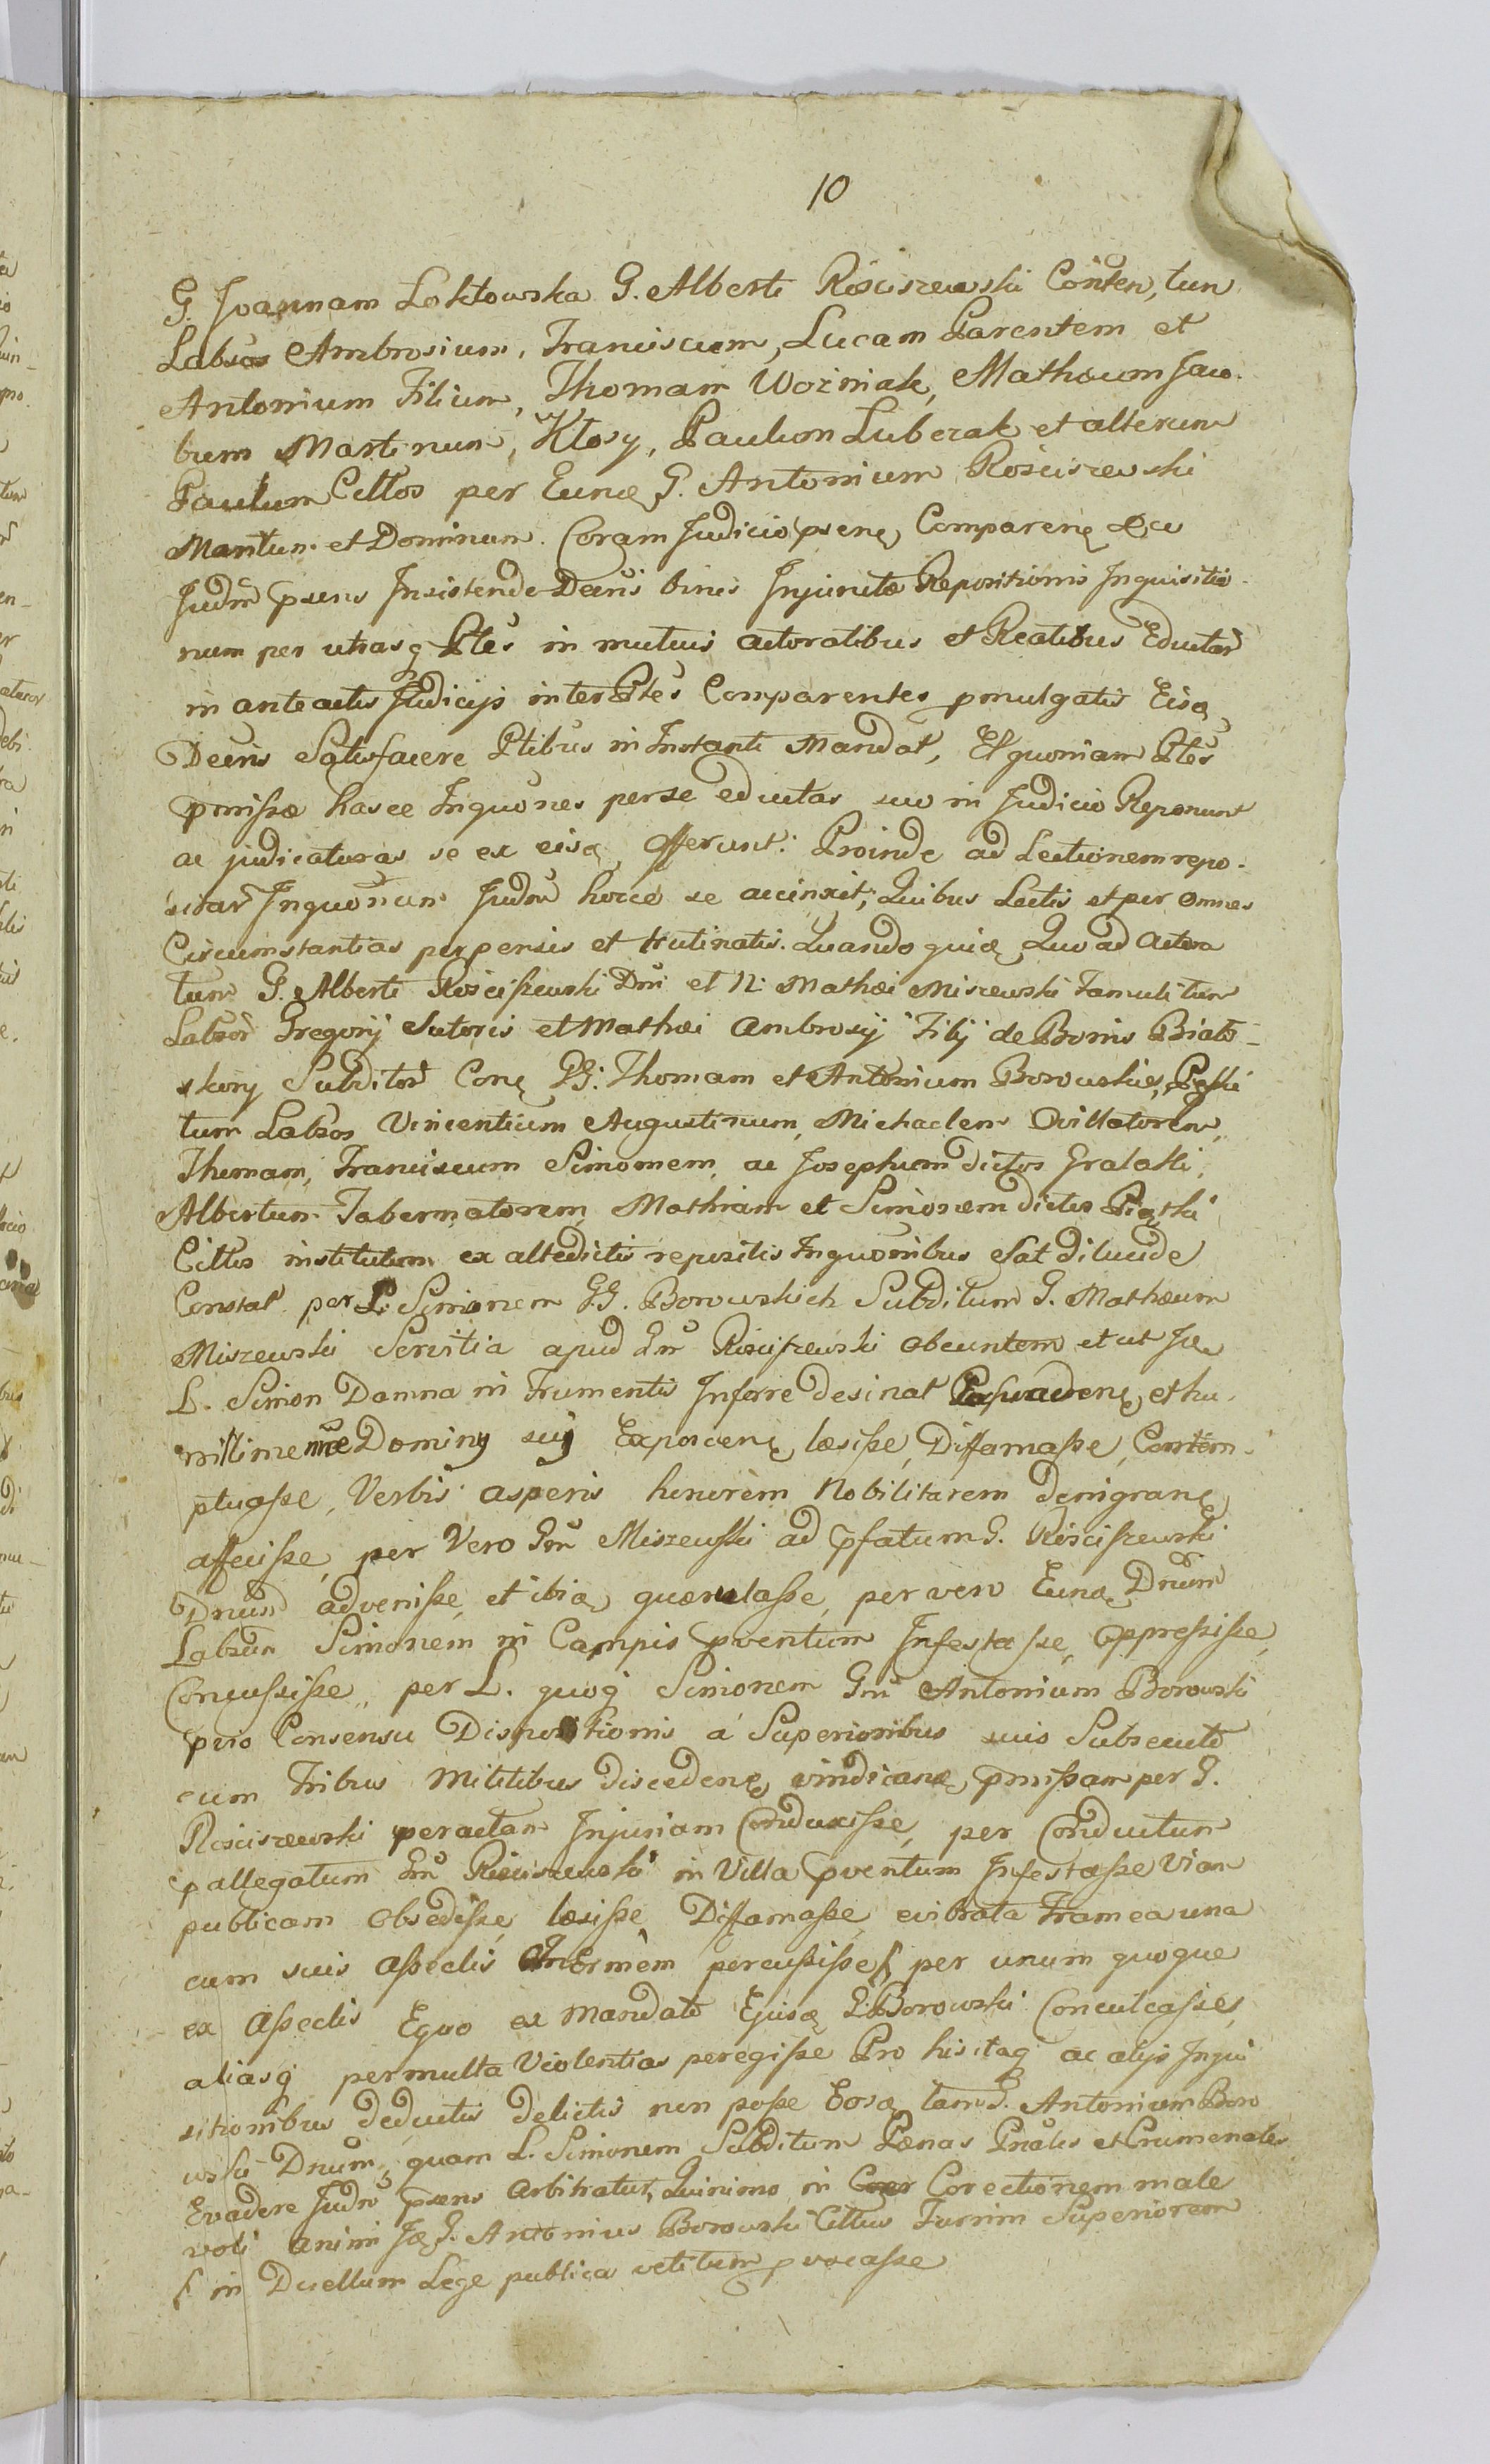 10
G. Joannam Loktowska G. Alberti Rosciszewski Conten, tum
Labsos Ambrosium, Franciscum, Lucam Parentem et
Antonium Filium, Thomam Wozniak, Mathæum Jaco-
bum Martinum, Kłosy, Paulum Luberak et alterum
Paulum Cittos per Eunę G. Antonium Rosciszewski
Maritum et Dominum. Coram Judicio psenę Comparenę &ce
Judm psens Insistendo Decris binis Injunctæ Repositionis Inquisitio-
num per utrasq Ptes in mutuis actoratibus et Reatibus Eductar
in anteactis Judicijs inter Ptes Comparentes pmulgatis Eisą
Decris Satisfacere Ptibus in Instanti Mandat, Et quoniam Ptes
pmissæ hasce Inquones per se eductas suo in Judicio Reponunt
ac judicaturas se ex eisą offerunt: Proinde ad Lectionem repo-
sitar Inquonum Judm hocce se accinxit; Quibus Lectis et per omnes
Circumstantias perpensis et trutinatis. Quandoquidę Quo ad Actora
tum G. Alberti Rosciszewski Dni et N: Mathæi Miszewski Famuli tum
Labsor Gregorij Sutoris et Mathæi Ambrosij Filij de Bonis Biało-
skory Subditor Conę GG: Thomam et Antonium Borowskies,
tum Labsos Vincentium Augustinum, Michaelem Ovillatorem,
Thomam, Franciscum Simonem, ac Josephum dictos Gralaki,
Albertum Tabernatorem Mathiam et Simonem dictos Piątki
Cittos institutum ex altedictis repositis Inquonibus Sat dilucide
Constat per L. Simonem GG. Borowskich Subditum G. Mathæum
Miszewski Servitia apud Gm Rosciszewski obeuntem et ut Ję
L. Simon Damna in Frumentis Inferre desinat Persuadenę, et hu-
millime nne Dominij sui Exposcenę læsiße, Diffamaße, Contem-
ptuaße, Verbis asperis honorem Nobilitarem denigranę
affeciße, per Vero Gm Miszewski ad pfatum G. Rosciszewski
Dnum adveniße, et ibię quærulaße, per vero Eunę Dnum
Labsum Simonem in Campis pventum Infestaße, oppreßiße,
Concußiße, per L. quoq Simonem Gm Antonium Borowski
pvio Consensu Dispositionis a Superioribus suis Subsecuto
cum Tribus Militibus discedenę, vindicanę, pmißam per G.
Rosciszewski peractam Injuriam Conduxiße, per Conductum
pallegatum Gm Rosciszewski in Villa pventum Infestaße Viam
publicam obsediße, læsiße, Diffamaße, evibrata Framea una
cum suis aßeclis Inermem percußiße ſ per unum quoque
ex aßeclis Equo ex Mandato Ejusę G. Borowski Conculcaße,
aliasq permulta Violentias peregiße Pro his itaq ac alijs Inqui
sitionibus deductis delictis non poße Eosę tam G. Antonium Boro
wski Dnum, quam L. Simonem Subditum Pænas Pnales et Crumenales
Evadere Judm psens arbitratur, Quinimo in Corectionem male
voli animi Ję G. Antonius Borowski Cittus Turrim Superiorem
ſ in Duellum Lege publica vetitum pvocaße